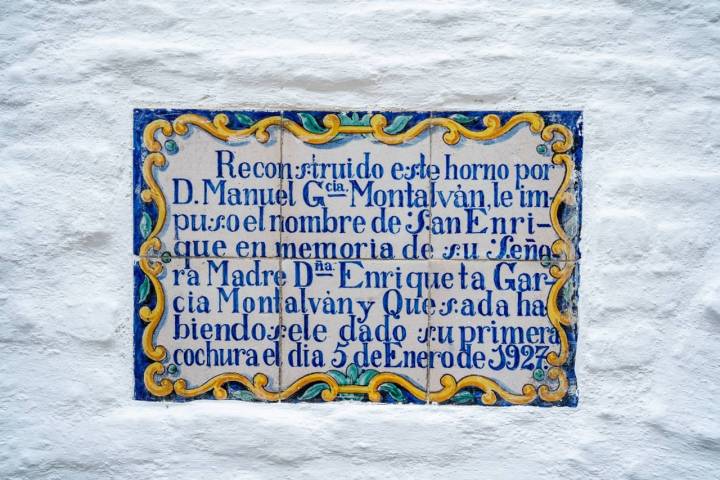 Reconstruido este horno por
D. Manuel Gcia. Montalván, le im-
puso el nombre de San Enri-
que en memoria de su Seño-
ra Madre Dña. Enriqueta Gar-
cia Montalván y Quesada ha-
biendosele dado su primera
cochura el dia 5 de Enero de 1927.